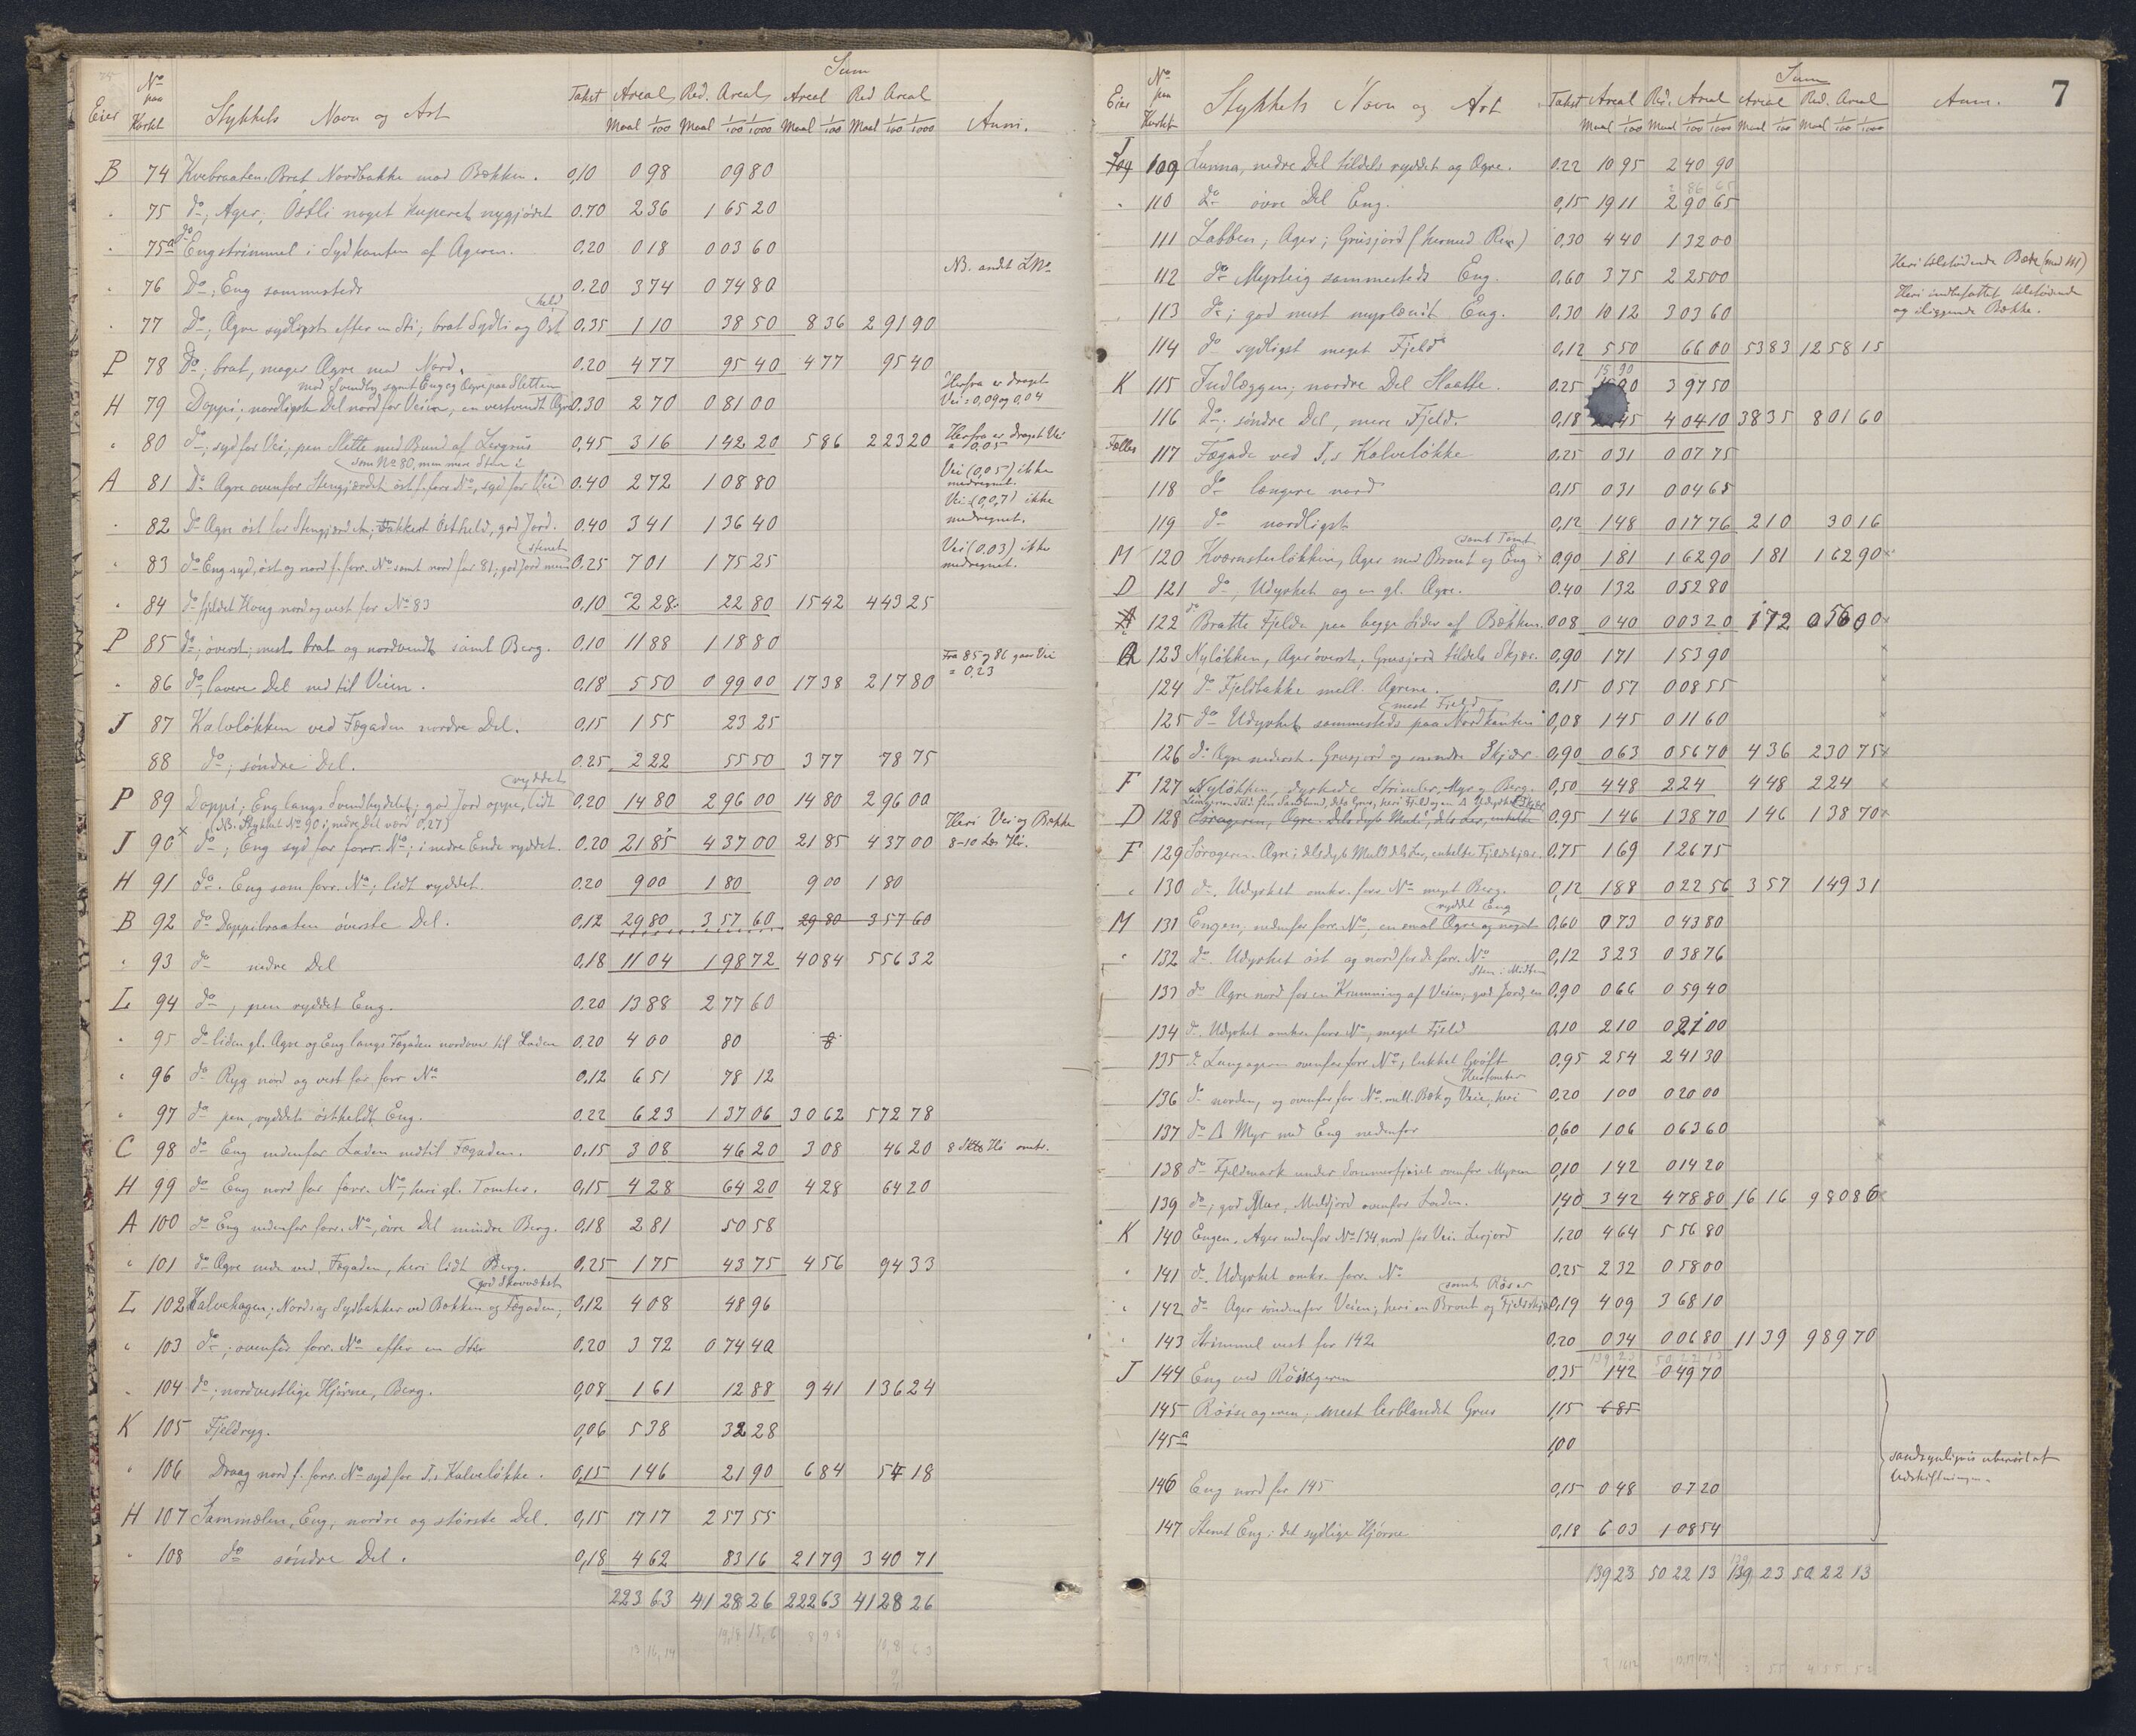 Eier No paa Kortet Stykkets Navn og Art Takst Areal Red. Areal Sum Areal Red Areal Anm.
Maal 1/100 Maal 1/100 1/1000 Maal 1/100 Maal 1/100 1/1000
B 74 Kvebraaten, Brat Nordbakke mod Bækken. 0,10 0 98 09 80
" 75 do, Ager, Östli noget kuperet nygjödet 0.70 2 36 1 65 20
" 75a do Engstrimmel i Sydkanten af Ageren. 0.20 0 18 0 03 60
" 76 Do, Eng sammesteds 0.20 3 74 0 74 80 NB. andt LNo
" 77 Do; Agre sydligst efter en Sti; brat Sydli og Öst held 0.35 1 10 38 50 8 36 2 91 90
P 78 Do; brat, mager Agre mod Nord. 0.20 4 77 95 40 4 77 95 40
mod Svendby samt Eng og Agre paa Sletten
H 79 Doppi. nordligste Del nord for Veien, en vestvendt Agre 0.30 2 70 0 81 00 Herfra er draget Vei = 0,09 og 0,04
" 80 do; syd for Vei; pen Slette med Bund af Lergrus 0,45 3 16 1 42 20 5 86 2 23 20 Herfra er draget Vei = 0,05
som No 80, men mere Sten i
A 81 Do Agre ovenfor Stengjærdet öst f. forr No, syd for Vei 0.40 2 72 1 08 80 Vei (0,05) ikke medregnet.
" 82 Do Agre öst for Stengjærdet, lakkert Östheld, god Jord. 0.40 3 41 1 36 40 Vei (0,07) ikke medregnet.
" 83 do Eng syd, öst og nord f. forr. No samt nord for 81; god Jord men stenet 0.25 7 01 1 75 25 Vei (0,03) ikke medregnet.
" 84 do fjeldet Houg nord og vest for No 83 0,10 2 28 22 80 15 42 4 43 25
P 85 do; överst; mest brat og nordvendt samt Berg. 0,10 11 88 1 18 80
" 86 do, lavere Del ned til Veien. 0,18 5 50 0 99 00 17 38 2 17 80 Fra 85 og 86 gaar Vei = 0,23
J 87 Kalvløkken ved Fægaden nordre Del. 0,15 1 55 23 25
88 do; söndre Del. 0.25 2 22 55 50 3 77 78 75
P 89 Doppi; Eng langs Svendbydelet; god Jord oppe, lidt ryddet 0,20 14 80 2 96 00 14 80 2 96 00
(NB. Stykket No 90 i nedre Del værd 0,27)
J 90 do; Eng syd for forr. No; i nedre Ende ryddet. 0.20 21 85 4 37 00 21 85 4 37 00 Heri Vei og Bække 8-10 Læs Hö.
H 91 do. Eng som forr. No; lidt ryddet. 0,20 9 00 1 80 9 00 1 80
B 92 do Doppibraaten överste Del. 0,12 29 80 3 57 60 29 80 3 57 60
" 93 do nedre Del 0,18 11 04 1 98 72 40 84 5 56 32
L 94 do, pen ryddet Eng. 0.20 13 88 2 77 60
" 95 do liden gl. Agre og Eng langs Fægaden nordover til Laden 0.20 4 00 80
" 96 do Ryg nord og vest for forr No 0,12 6 51 78 12
" 97 do pen, ryddet östheldt Eng. 0.22 6 23 1 37 06 30 62 5 72 78
C 98 do Eng nedenfor Laden nedtil Fægaden. 0,15 3 08 46 20 3 08 46 20 8 Hö omtr.
H 99 do Eng nord for forr. No, heri gl. Tomter. 0,15 4 28 64 20 4 28 64 20
A 100 do Eng nedenfor forr. No, övre Del mindre Berg. 0,18 2 81 50 58
" 101 do Agre nede ved Fægaden, heri lidt Berg. 0,25 1 75 43 75 4 56 94 33
L 102 Kalvehagen; Nord og Sydbakker ved Bækken og Fægaden; god Skovvækst 0,12 4 08 48 96
" 103 do; ovenfor forr. No efter en Sten 0.20 3 72 0 74 40
" 104 do; nordvestlige Hjörne, Berg. 0,08 1 61 12 88 9 41 1 36 24
K 105 Fjeldryg. 0,06 5 38 32 28
" 106 Draag nord f. forr. No syd for J.s Kalveløkke. 0,15 1 46 21 90 6 84 54 18
H 107 Sammelen, Eng, nordre og störste Del. 0,15 17 17 2 57 55
" 108 do söndre Del. 0,18 4 62 83 16 21 79 3 40 71
223 63 41 28 26 222 63 41 28 26
7
Eier No paa Kortet Stykkets Navn og Art Takst Areal Red. Areal Sum Areal Red. Areal Anm.
Maal 1/100 Maal 1/100 1/1000 Maal 1/100 Maal 1/100 1/1000
J 109 Lunna, nedre Del tildels ryddet og Agre. 0.22 10 95 2 40 90
" 110 do övre Del Eng. 0,15 19 11 2 90 65
111 Labben; Ager; Grusjord (hermed Rees) 0,30 4 40 1 32 00
112 do Myrteig sammesteds Eng. 0,60 3 75 2 25 00 Heri tilstødende Bæk (mod 111)
113 do; god mest myrlændt Eng. 0.30 10 12 3 03 60 Heri indbefattet tilstødende og iliggende Bække.
114 do sydligst meget Fjeld 0,12 5 50 66 00 53 83 12 58 15
K 115 Indlæggen; nordre Del Slaatte. 0.25 15 90 3 97 50
116 do; söndre Del, mere Fjeld. 0,18 45 4 04 10 38 35 8 01 60
Fælles 117 Fægade ved J.s Kalveløkke 0.25 0 31 0 07 75
118 do længere nord 0,15 0 31 0 04 65
119 do nordligst 0,12 1 48 0 17 76 2 10 30 16
M 120 Kværnsterløkken, Ager med Brout og Eng samt Tomt 0,90 1 81 1 62 90 1 81 1 62 90
D 121 do, Udyrket og en gl. Agre. 0.40 1 32 0 52 80
122 do Bratte Fjelde paa begge Sider af Bækken. 0 08 0 40 0 03 20 1 72 0 56 00
Q 123 Nyløkken, Ager överst, Grusjord tildels Skjær. 0,90 1 71 1 53 90
124 do Fjeldbakke mell. Agrene. 0,15 0 57 0 08 55
125 do Udyrket sammesteds paa Nordkanten mest Fjeld 0,08 1 45 0 11 60
126 do Agre nederst. Grusjord og mindre Skjær. 0,90 0 63 0 56 70 4 36 2 30 75
F 127 Nyløkken, dyrkede Strimler, Myr og Berg. 0,50 4 48 2 24 4 48 2 24
D 128 Sörageren, Agre. 0,95 1 46 1 38 70 1 46 1 38 70
F 129 Sörageren. Agre; dels dyb Muld dels Ler, enkelte Fjeldskjær. 0.75 1 69 1 26 75
" 130 do. Udyrket omkr. forr No meget Berg. 0,12 1 88 0 22 56 3 57 1 49 31
M 131 Engen, nedenfor forr. No, en smal Agre og noget ryddet Eng 0,60 0 73 0 43 80
" 132 do. Udyrket öst og nord for de forr. No 0,12 3 23 0 38 76
133 do Agre nord for en Krumning af Veien, god Jord, en Sten i Midten 0,90 0 66 0 59 40
134 do. Udyrket omkr. forr No, meget Fjeld 0,10 2 10 0 21 00
135 do Langageren ovenfor forr No; lukket Gröft 0,95 2 54 2 41 30
136 do norden, og ovenfor forr No. mell. Bæk og Veie, heri Hustomter 0.20 1 00 0 20 00
137 do Δ Myr med Eng nedenfor 0,60 1 06 0 63 60
138 do Fjeldmark under Sommerfjøset ovenfor Myren 0,10 1 42 0 14 20
139 do; god Myr, Muldjord ovenfor Laden. 1,40 3 42 4 78 80 16 16 9 80 86
K 140 Engen. Ager nedenfor No 134, nord for Vei. Lerjord 1,20 4 64 5 56 80
" 141 do. Udyrket omkr. forr. No 0,25 2 32 0 58 00
" 142 do Ager söndenfor Veien; heri en Brout og Fjeldskjær samt Röser 0,19 4 09 3 68 10
" 143 Strimmel vest for 142 0.20 0 34 0 06 80 11 39 9 89 70
J 144 Eng ved Röisageren 0,35 1 42 0 49 70
145 Röisageren; mest lerblandet Grus 1,15 6 85
145a 1,00
146 Eng nord for 145 0,15 0 48 0 7 20
147 Stenet Eng i det sydlige Hjörne 0,18 6 03 1 08 54
sandsynligvis uberört af Udskiftningen.
139 23 50 22 13 139 23 50 22 13